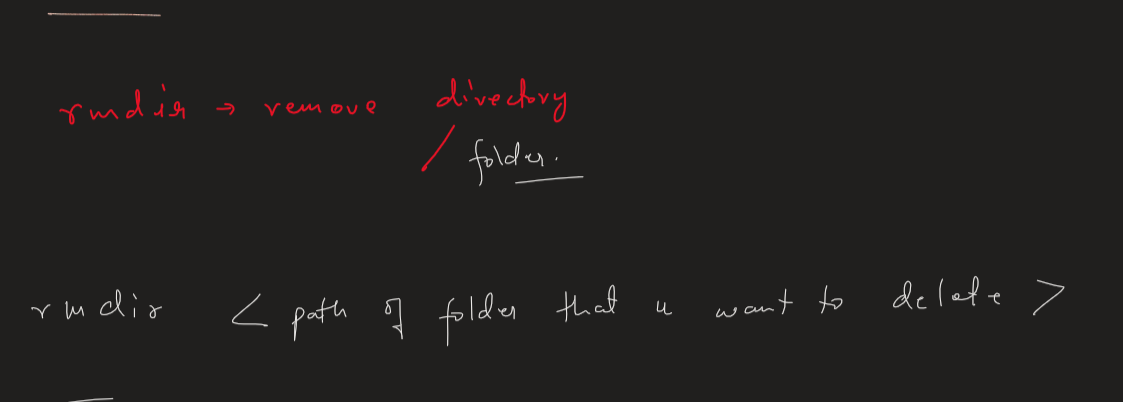 rmdir → remove directory
/ folder.
rmdir < path of folder that u want to delete >